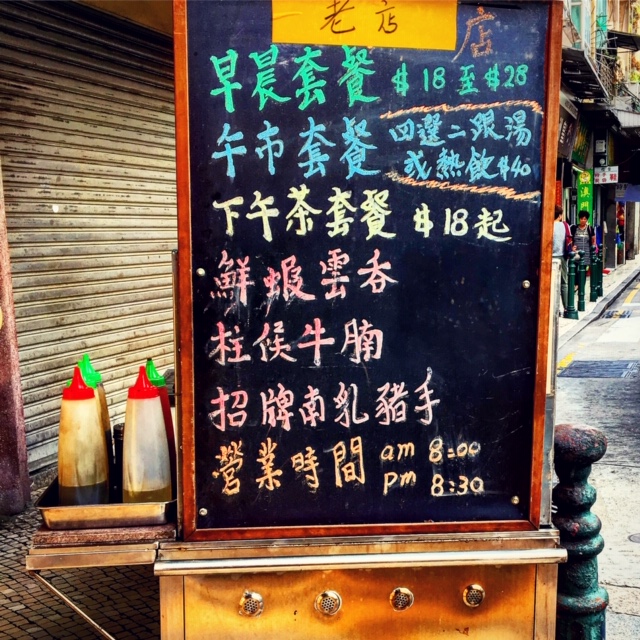 老店
店
早晨套餐 $18至$28
午市套餐 四選二跟湯
或熱飲$40
下午茶套餐 $18起
鮮蝦雲吞
柱侯牛腩
招牌南乳豬手
營業時間 am 8:00
pm 8:30